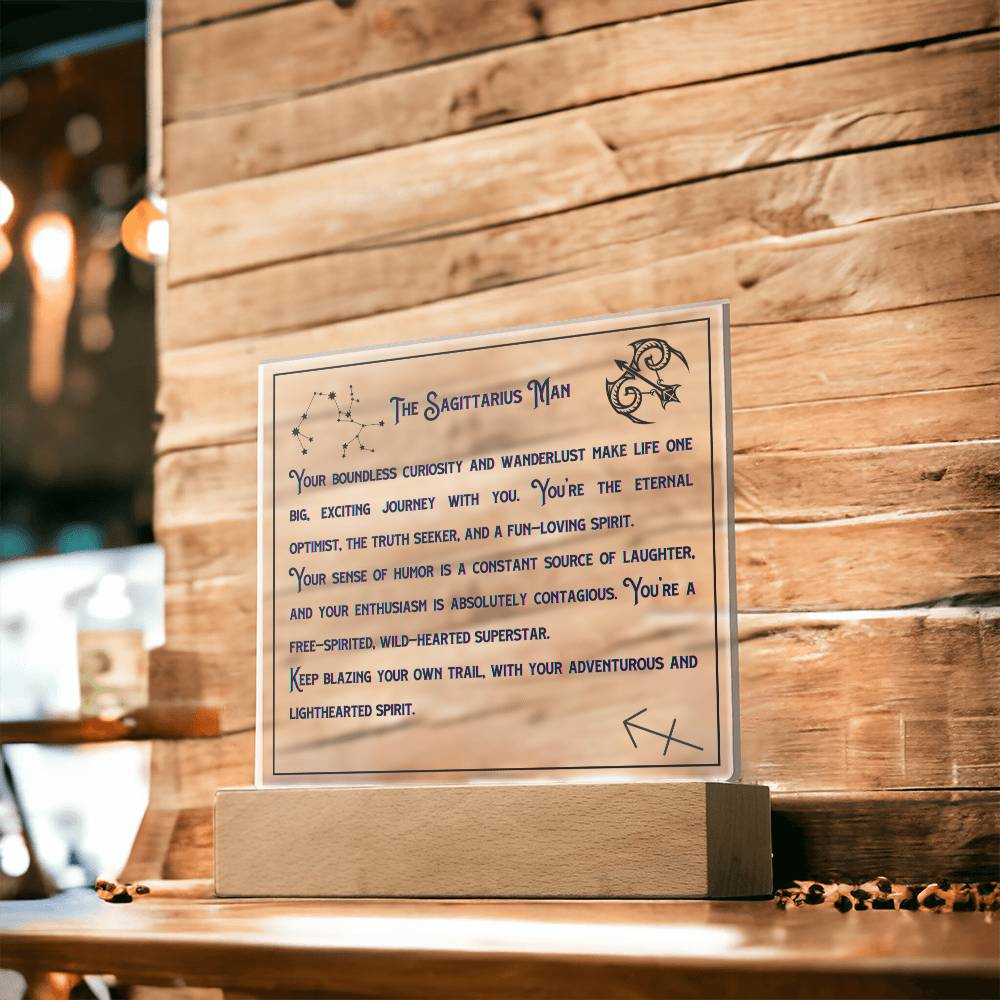 The Sagittarius Man
Your boundless curiosity and wanderlust make life one
big, exciting journey with you. You're the eternal
optimist, the truth seeker, and a fun-loving spirit.
Your sense of humor is a constant source of laughter,
and your enthusiasm is absolutely contagious. You're a
free-spirited, wild-hearted superstar.
Keep blazing your own trail, with your adventurous and
lighthearted spirit.